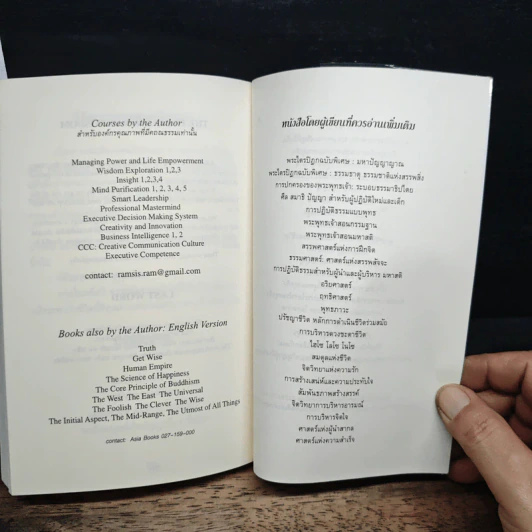 Courses by the Author
สำหรับองค์กรคุณภาพที่มีคุณธรรมเท่านั้น
Managing Power and Life Empowerment
Wisdom Exploration 1,2,3
Insight 1,2,3,4
Mind Purification 1, 2, 3, 4, 5
Smart Leadership
Professional Mastermind
Executive Decision Making System
Creativity and Innovation
Business Intelligence 1, 2
CCC: Creative Communication Culture
Executive Competence
contact: ramsis.ram@gmail.com
Books also by the Author: English Version
Truth
Get Wise
Human Empire
The Science of Happiness
The Core Principle of Buddhism
The West The East The Universal
The Foolish The Clever The Wise
The Initial Aspect, The Mid-Range, The Utmost of All Things
contact: Asia Books 027-159-000
หนังสือโดยผู้เขียนที่ควรอ่านเพิ่มเติม
พระไตรปิฎกฉบับพิเศษ : มหาปัญญาญาณ
พระไตรปิฎกฉบับพิเศษ : ธรรมธาตุ ธรรมชาติแห่งสรรพสิ่ง
การปกครองของพระพุทธเจ้า: ระบอบธรรมาธิปไตย
ศีล สมาธิ ปัญญา สำหรับผู้ปฏิบัติใหม่และเด็ก
การปฏิบัติธรรมแบบพุทธ
พระพุทธเจ้าสอนกรรมฐาน
พระพุทธเจ้าสอนมหาสติ
สรรพศาสตร์แห่งการฝึกจิต
ธรรมศาสตร์: ศาสตร์แห่งสรรพสัจจะ
การปฏิบัติธรรมสำหรับผู้นำและผู้บริหาร มหาสติ
อริยศาสตร์
ฤทธิศาสตร์
พุทธภาวะ
ปรัชญาชีวิต หลักการดำเนินชีวิตร่วมสมัย
การบริหารดวงชะตาชีวิต
ไฮโซ โลโซ โนโซ
สมดุลแห่งชีวิต
จิตวิทยาแห่งความรัก
การสร้างเสน่ห์และความประทับใจ
สัมพันธภาพสร้างสรรค์
จิตวิทยาการบริหารอารมณ์
การบริหารจิตใจ
ศาสตร์แห่งผู้นำสากล
ศาสตร์แห่งความสำเร็จ